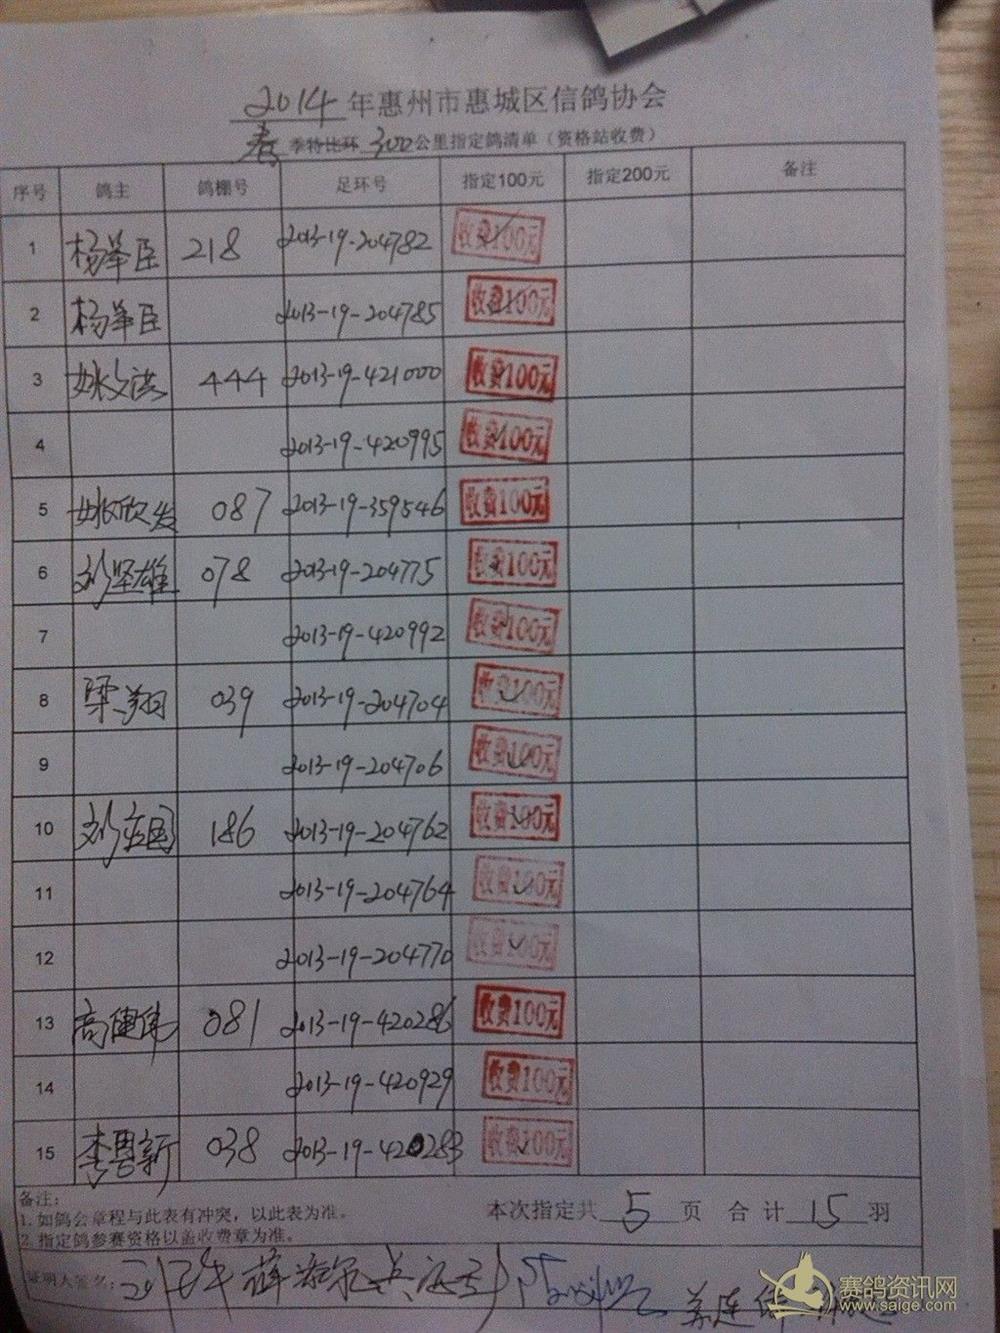 2014年惠州市惠城区信鸽协会
春季特比环300公里指定鸽清单（资格站收费）
序号 鸽主 鸽棚号 足环号 指定100元 指定200元 备注
1 杨举臣 218 2013-19-204782 收费100元
2 杨举臣 2013-19-204785 收费100元
3 姚文洪 444 2013-19-421000 收费100元
4 2013-19-420995 收费100元
5 姚欣发 087 2013-19-359546 收费100元
6 刘坚雄 078 2013-19-204775 收费100元
7 2013-19-420992 收费100元
8 梁翔 039 2013-19-204704 收费100元
9 2013-19-204706 收费100元
10 刘应国 186 2013-19-204762 收费100元
11 2013-19-204764 收费100元
12 2013-19-204770 收费100元
13 高健伟 081 2013-19-420286 收费100元
14 2013-19-420929 收费100元
15 李粤新 038 2013-19-420283 收费100元
备注：
1. 如鸽会章程与此表有冲突，以此表为准。
2. 指定鸽参赛资格以盖收费章为准。
本次指定共5页 合计15羽
证明人签名：
赛鸽资讯网
www.saige.com